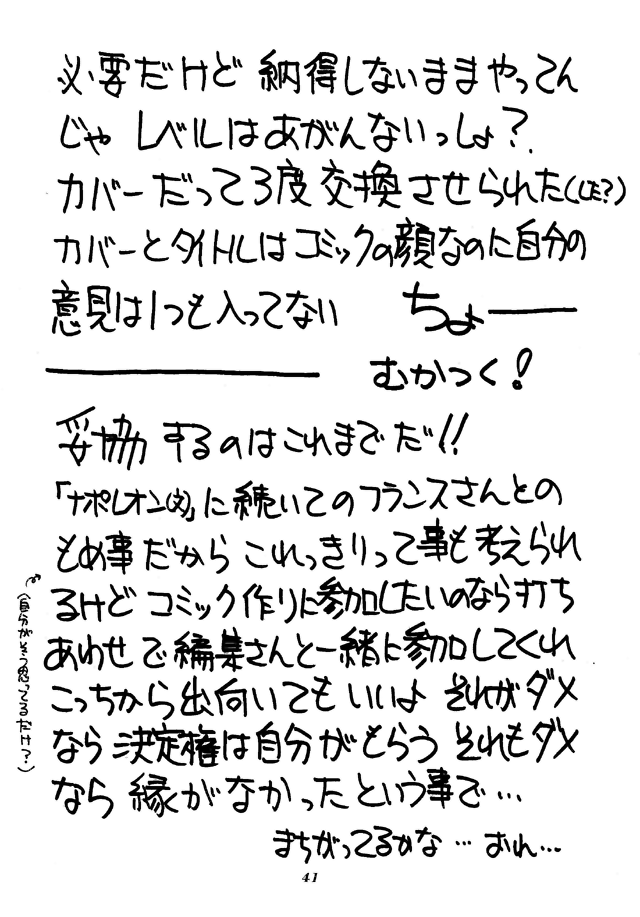 必要だけど 納得しないままやってん
じゃ レベルはあがんないっしょ？
カバーだって3度交換させられた(LE?)
カバーとタイトルはコミックの顔なのに自分の
意見は1つも入ってない ちょー
――― むかつく！
妥協するのはこれまでだ!!
「ナポレオン(文)」に続いてのフランスさんとの
もめ事だから これっきりって事も考えられ
るけど コミック作りに参加したいのなら打ち
あわせで編集さんと一緒に参加してくれ
こっちから出向いてもいいよ それがダメ
なら 決定権は自分がもらう それもダメ
なら 縁がなかったという事で…
まちがってるかな … おれ…
(自分がそう思ってるだけ?)
41